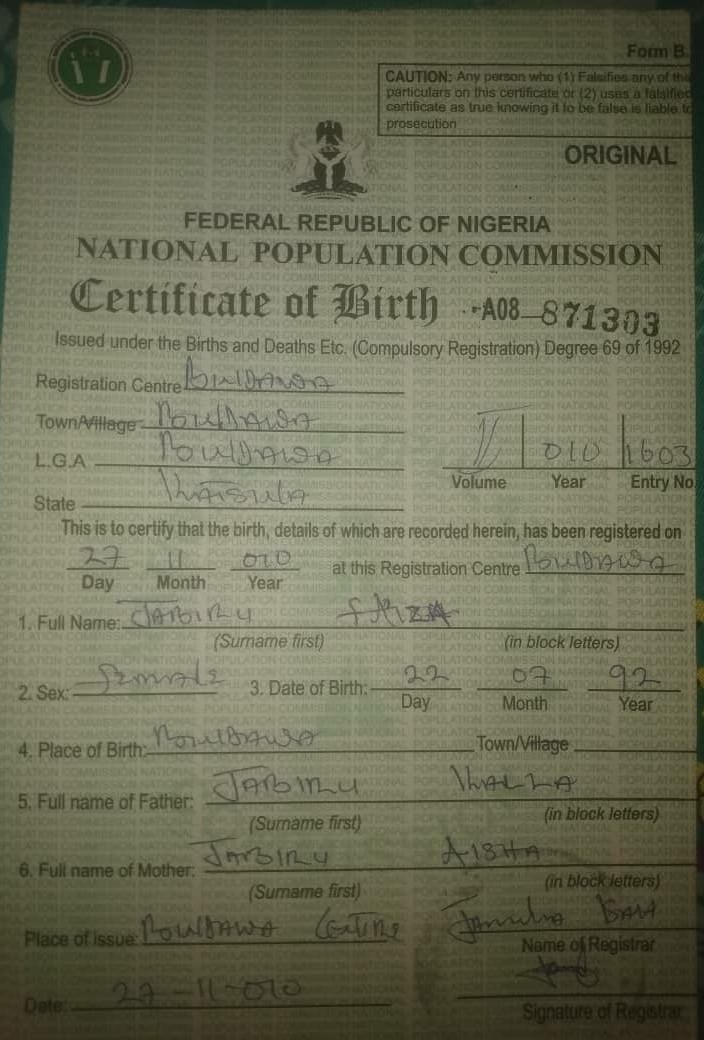 Form B
CAUTION: Any person who (1) Falsifies any of the
particulars on this certificate or (2) uses a falsified
certificate as true knowing it to be false is liable to
prosecution
ORIGINAL
FEDERAL REPUBLIC OF NIGERIA
NATIONAL POPULATION COMMISSION
Certificate of Birth A08 871303
Issued under the Births and Deaths Etc. (Compulsory Registration) Degree 69 of 1992
Registration Centre
Town/Village
L.G.A
State Katsina
II 010 1603
Volume Year Entry No.
This is to certify that the birth, details of which are recorded herein, has been registered on
27 11 010 at this Registration Centre
Day Month Year
1. Full Name: JABIRU FAIZA
(Surname first) (in block letters)
2. Sex: Female 3. Date of Birth: 22 07 92
Day Month Year
4. Place of Birth: Town/Village
5. Full name of Father: JABIRU KALLA
(Surname first) (in block letters)
6. Full name of Mother: JABIRU AISHA
(Surname first) (in block letters)
Place of issue: Centre
Name of Registrar
Date: 27-11-010
Signature of Registrar